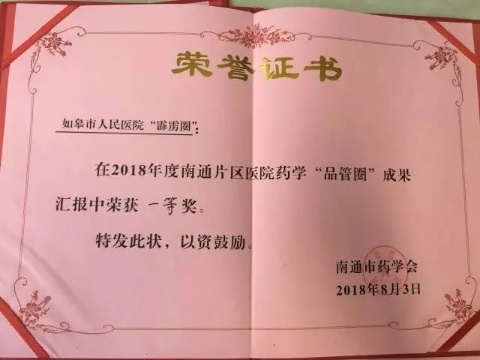 荣誉证书
如皋市人民医院“霹雳圈”：
在2018年度南通片区医院药学“品管圈”成果
汇报中荣获 一等奖。
特发此状，以资鼓励。
南通市药学会
2018年8月3日